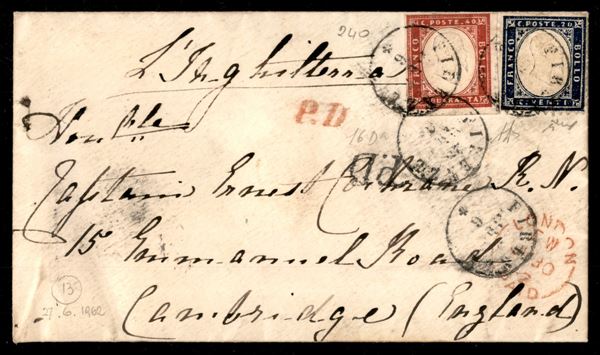 240
C. POSTE. 40
FRANCO
BOLLO
QUARANTA
C. POSTE. 20
FRANCO
BOLLO
C. VENTI
L'Inghilterra
P.D
Hon.ble
FIRENZE
16 Da
P.D.
Captain Ernest Cochrane R. N.
FIRENZE
15 Emmanuel Road
LONDON
PAID
Cambridge (England)
13
27.6.1962